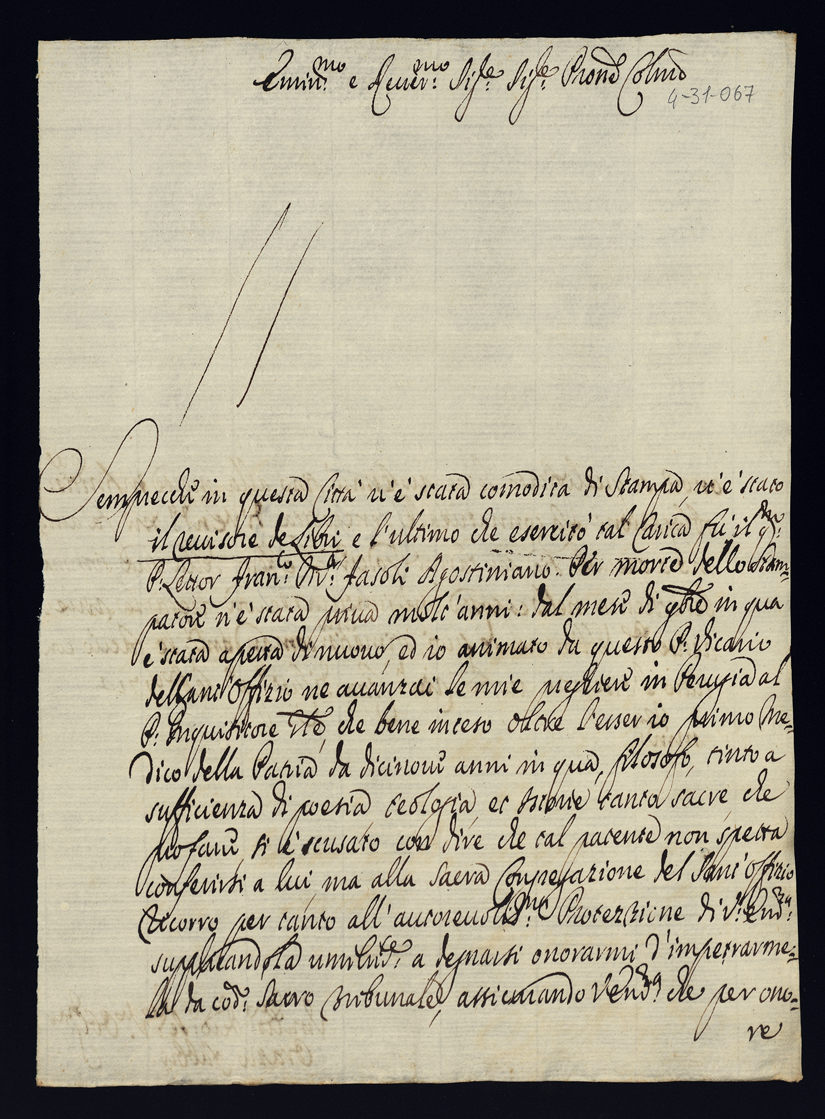 Emin.mo e Reuer.mo Sig.re Sig.re Pron.e Colmo
4-31-067
Sempreche in questa Città u'è stata comodità di Stampa, u'è stato
il reuisore de Libri e l'ultimo che esercitò tal Carica fù il qm
P. Lettor Fran.co M.a Fasoli Agostiniano. Per morte dello Stam=
patore n'è stata priua molt'anni: dal mese di 9bre in qua
è stata aperta di nuouo, ed io animato da questo P. Vicario
del Sant'Offizio ne auanzai le mie preghiere in Perugia al
P. Inquisitore Gle, che bene inteso oltre l'esser io primo Me=
dico della Patria da dicinoue anni in qua, filosofo, tinto a
sufficienza di poesia, teologia, et istorie tanto sacre, che
profane, si è scusato con dire che tal patente non spetta
conferirsi a lui, ma alla Sacra Congregazione del Sant'Offizio
Ricorro per tanto all'autoreuoliss.ma Protezzione di V. Em.za
supplicandola umilme. a degnarsi onorarmi d'impetrarme=
la da cod. Sacro Tribunale, assicurando V. Em.za che per ono=
re